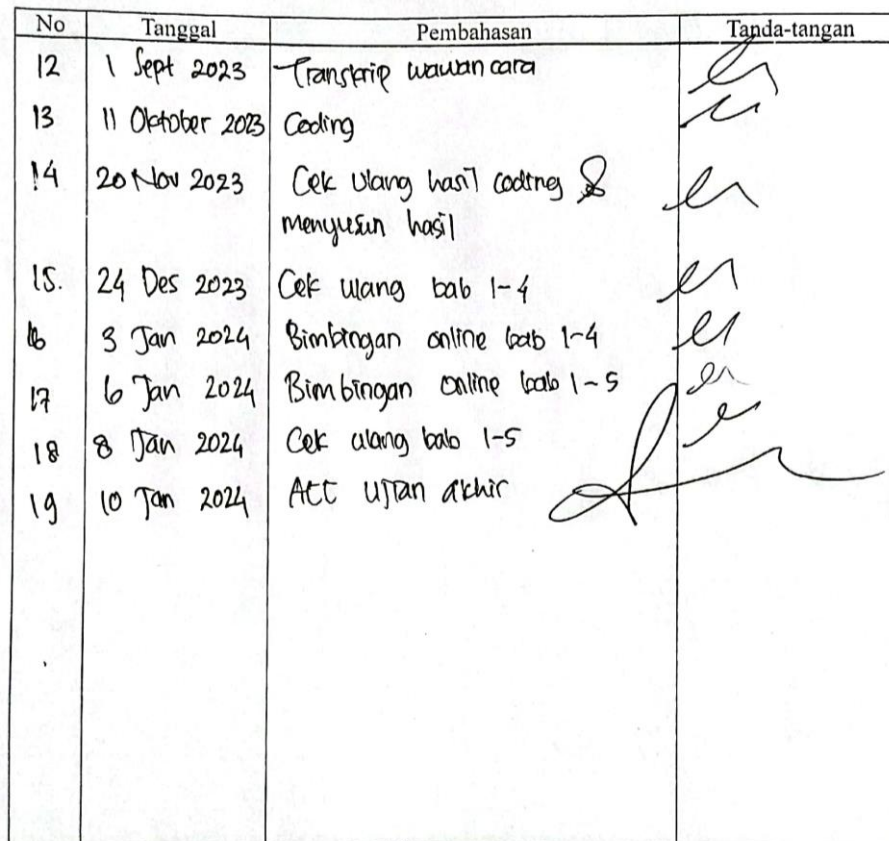 No Tanggal Pembahasan Tanda-tangan
12 1 Sept 2023 Transkrip wawancara
13 11 Oktober 2023 Coding
14 20 Nov 2023 Cek ulang hasil coding &
menyusun hasil
15. 24 Des 2023 Cek ulang bab 1-4
16 3 Jan 2024 Bimbingan online bab 1-4
17 6 Jan 2024 Bimbingan online bab 1-5
18 8 Jan 2024 Cek ulang bab 1-5
19 10 Jan 2024 ACC Ujian akhir